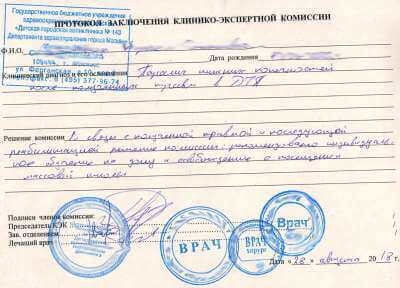 ПРОТОКОЛ ЗАКЛЮЧЕНИЯ КЛИНИКО-ЭКСПЕРТНОЙ КОМИССИИ
Государственное бюджетное учреждение
здравоохранения
«Детская городская поликлиника № 143
Департамента здравоохранения города Москвы»
109444, г. Москва
ул. Ферганская
факс: 8 (495) 377-96-74
Ф.И.О.
Дата рождения
Клинический диагноз и его осложнения Паралич нижних конечностей
после полученных травм в ДТП
Решение комиссии В связи с полученной травмой и последующей
реабилитацией решение комиссии: рекомендовано индивидуаль-
ное обучение на дому и освобождение от посещения
массовой школы
Подписи членов комиссии:
Председатель КЭК
Зав. отделением
Лечащий врач
ВРАЧ
Врач
хирург
Врач
Дата «28» августа 2018 г.